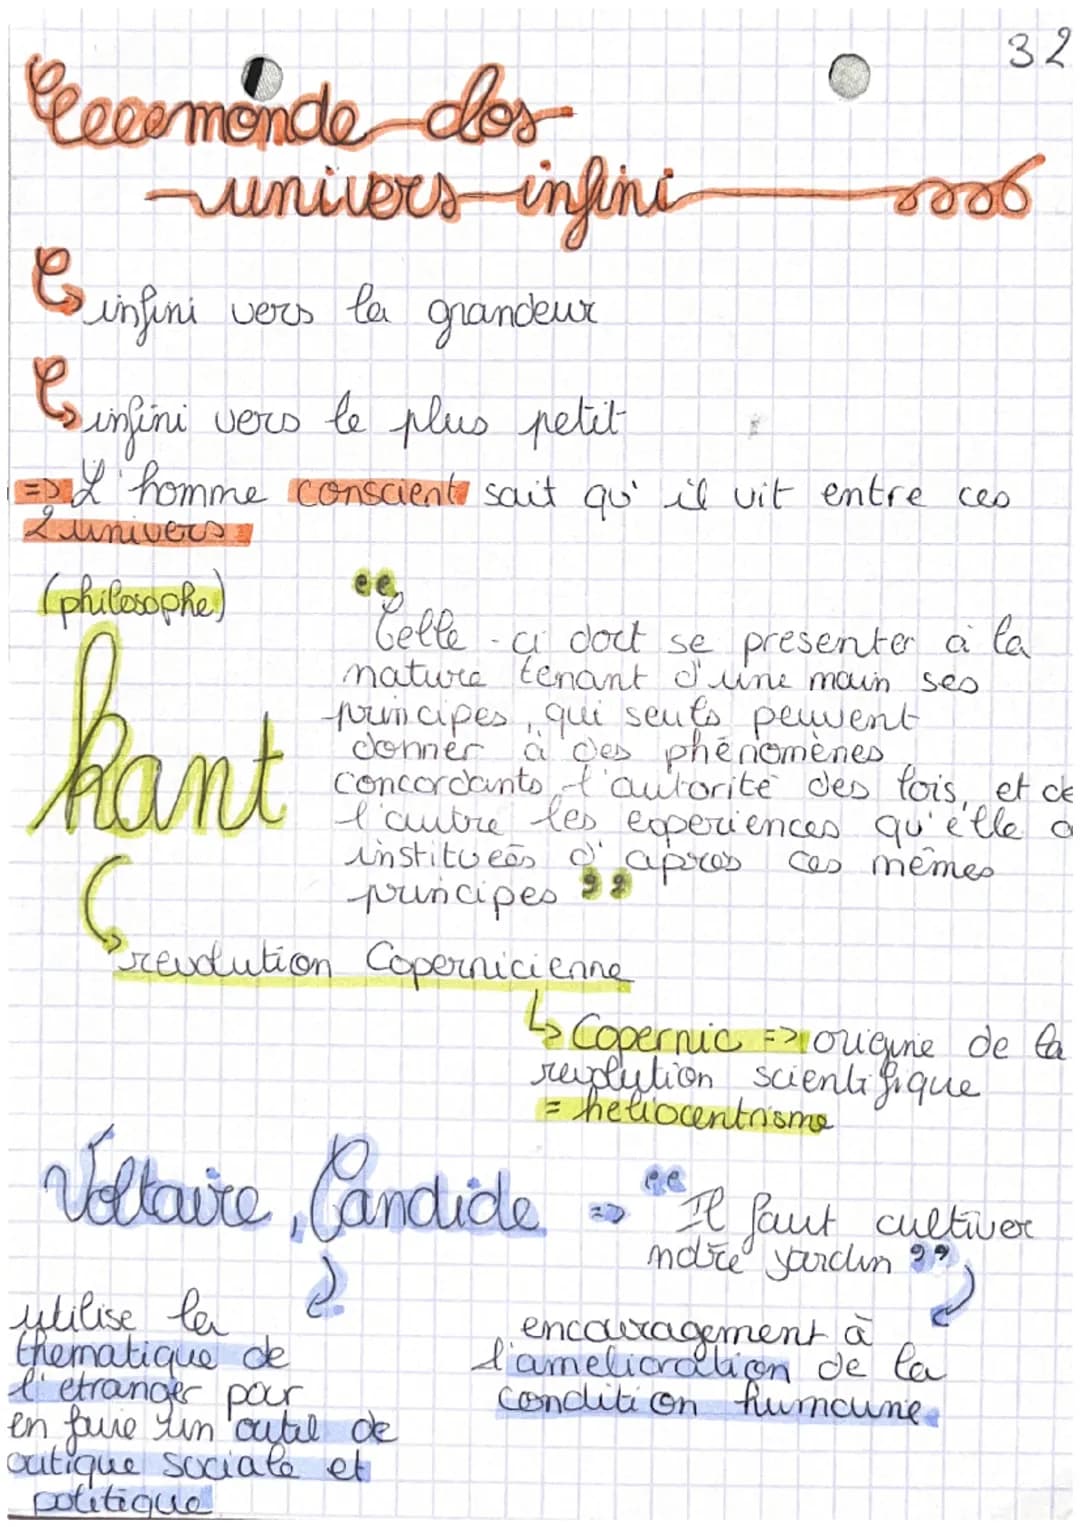 32
monde clos
univers infini
infini vers la grandeur
infini vers le plus petit
=> L'homme conscient sait qu'il vit entre ces
2 univers
(philosophe)
kant
"Celle-ci doit se presenter à la
nature tenant d'une main ses
principes, qui seuls peuvent
donner à des phénomènes
concordants l'autorité des lois, et de
l'autre les experiences qu'elle a
instituées d'apres ces mêmes
principes"
revolution Copernicienne
Copernic => origine de la
revolution scientifique
= heliocentrisme
Voltaire, Candide => "Il faut cultiver
notre jardin"
utilise la
thematique de
l'etranger pour
en faire un outil de
critique sociale et
politique
encouragement à
l'amelioration de la
condition humaine